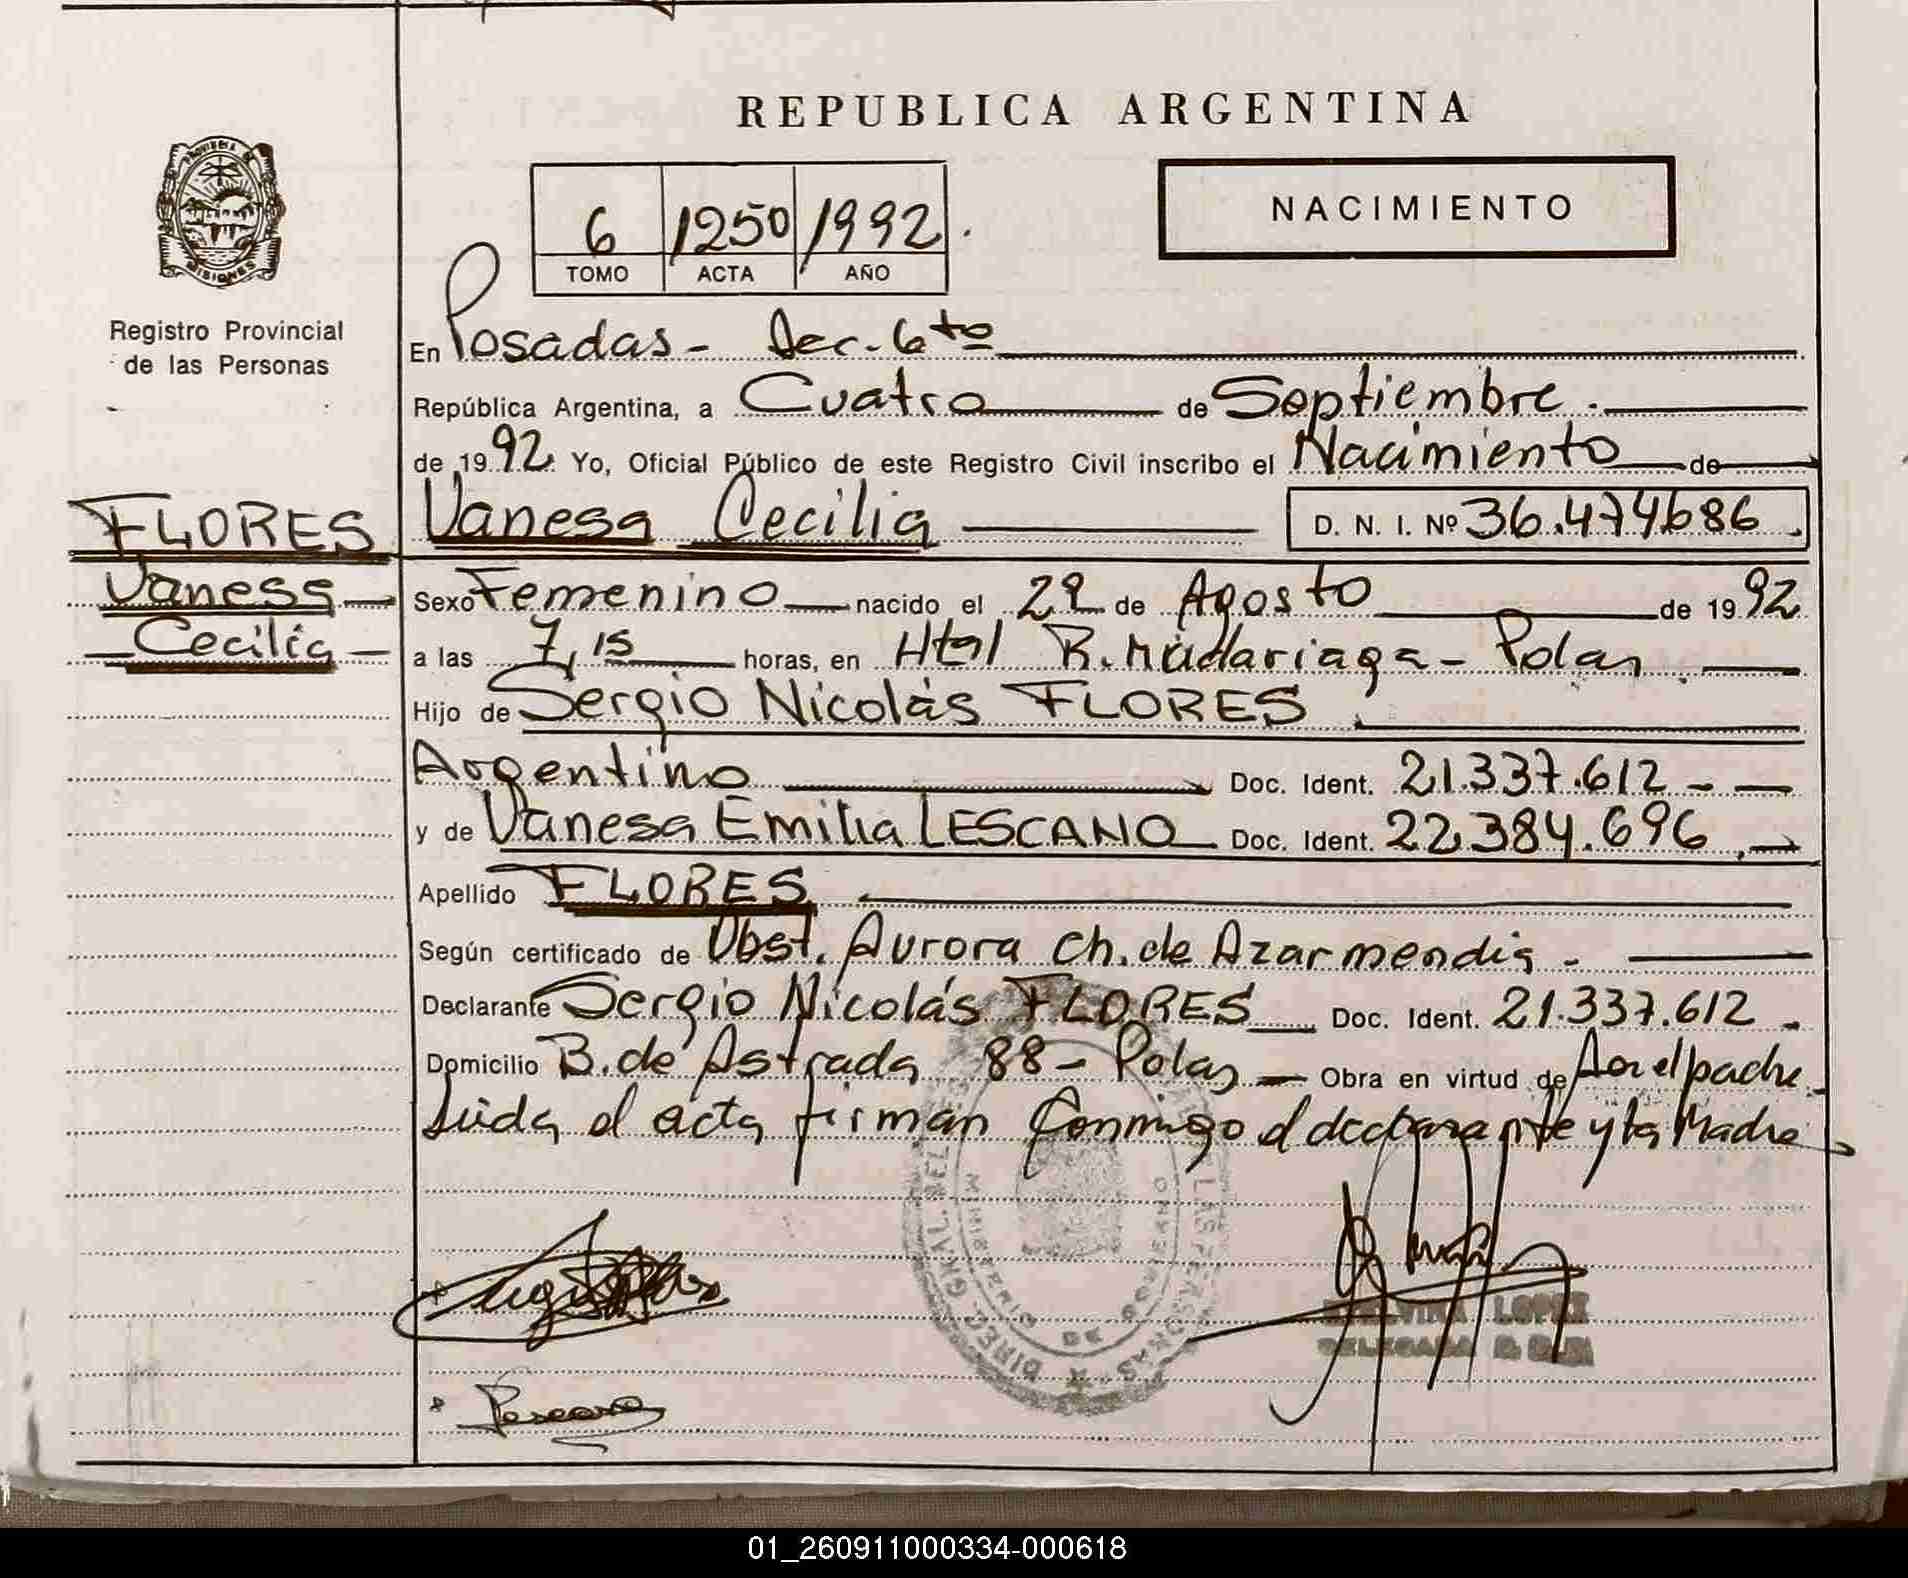 REPUBLICA ARGENTINA
PROVINCIA DE
MISIONES
Registro Provincial
de las Personas
6 1250 1992
TOMO ACTA AÑO
NACIMIENTO
En Posadas - Sec. 6to
República Argentina, a Cuatro de Septiembre.
de 1992 Yo, Oficial Público de este Registro Civil inscribo el Nacimiento de
FLORES
Vanesa
Cecilia
Vanesa Cecilia D. N. I. Nº 36.474686
Sexo Femenino nacido el de Agosto de 1992
a las 7,15 horas, en Htal R. Madariaga - Pdas
Hijo de Sergio Nicolás FLORES
Argentino Doc. Ident. 21.337.612 - -
y de Vanesa Emilia LESCANO Doc. Ident. 22.384.696
Apellido FLORES
Según certificado de Obst. Aurora Ch. de Azarmendia -
Declarante Sergio Nicolás FLORES Doc. Ident. 21.337.612 -
Domicilio B. de Astrada 88 - Pdas Obra en virtud de Ser el padre
Leida el acta firman Conmigo el declarante y la Madre
DIREC. GRAL. DEL LAS PERSONAS
MINISTERIO DE GOBIERNO
LOPEZ
DELEGADA
01_260911000334-000618